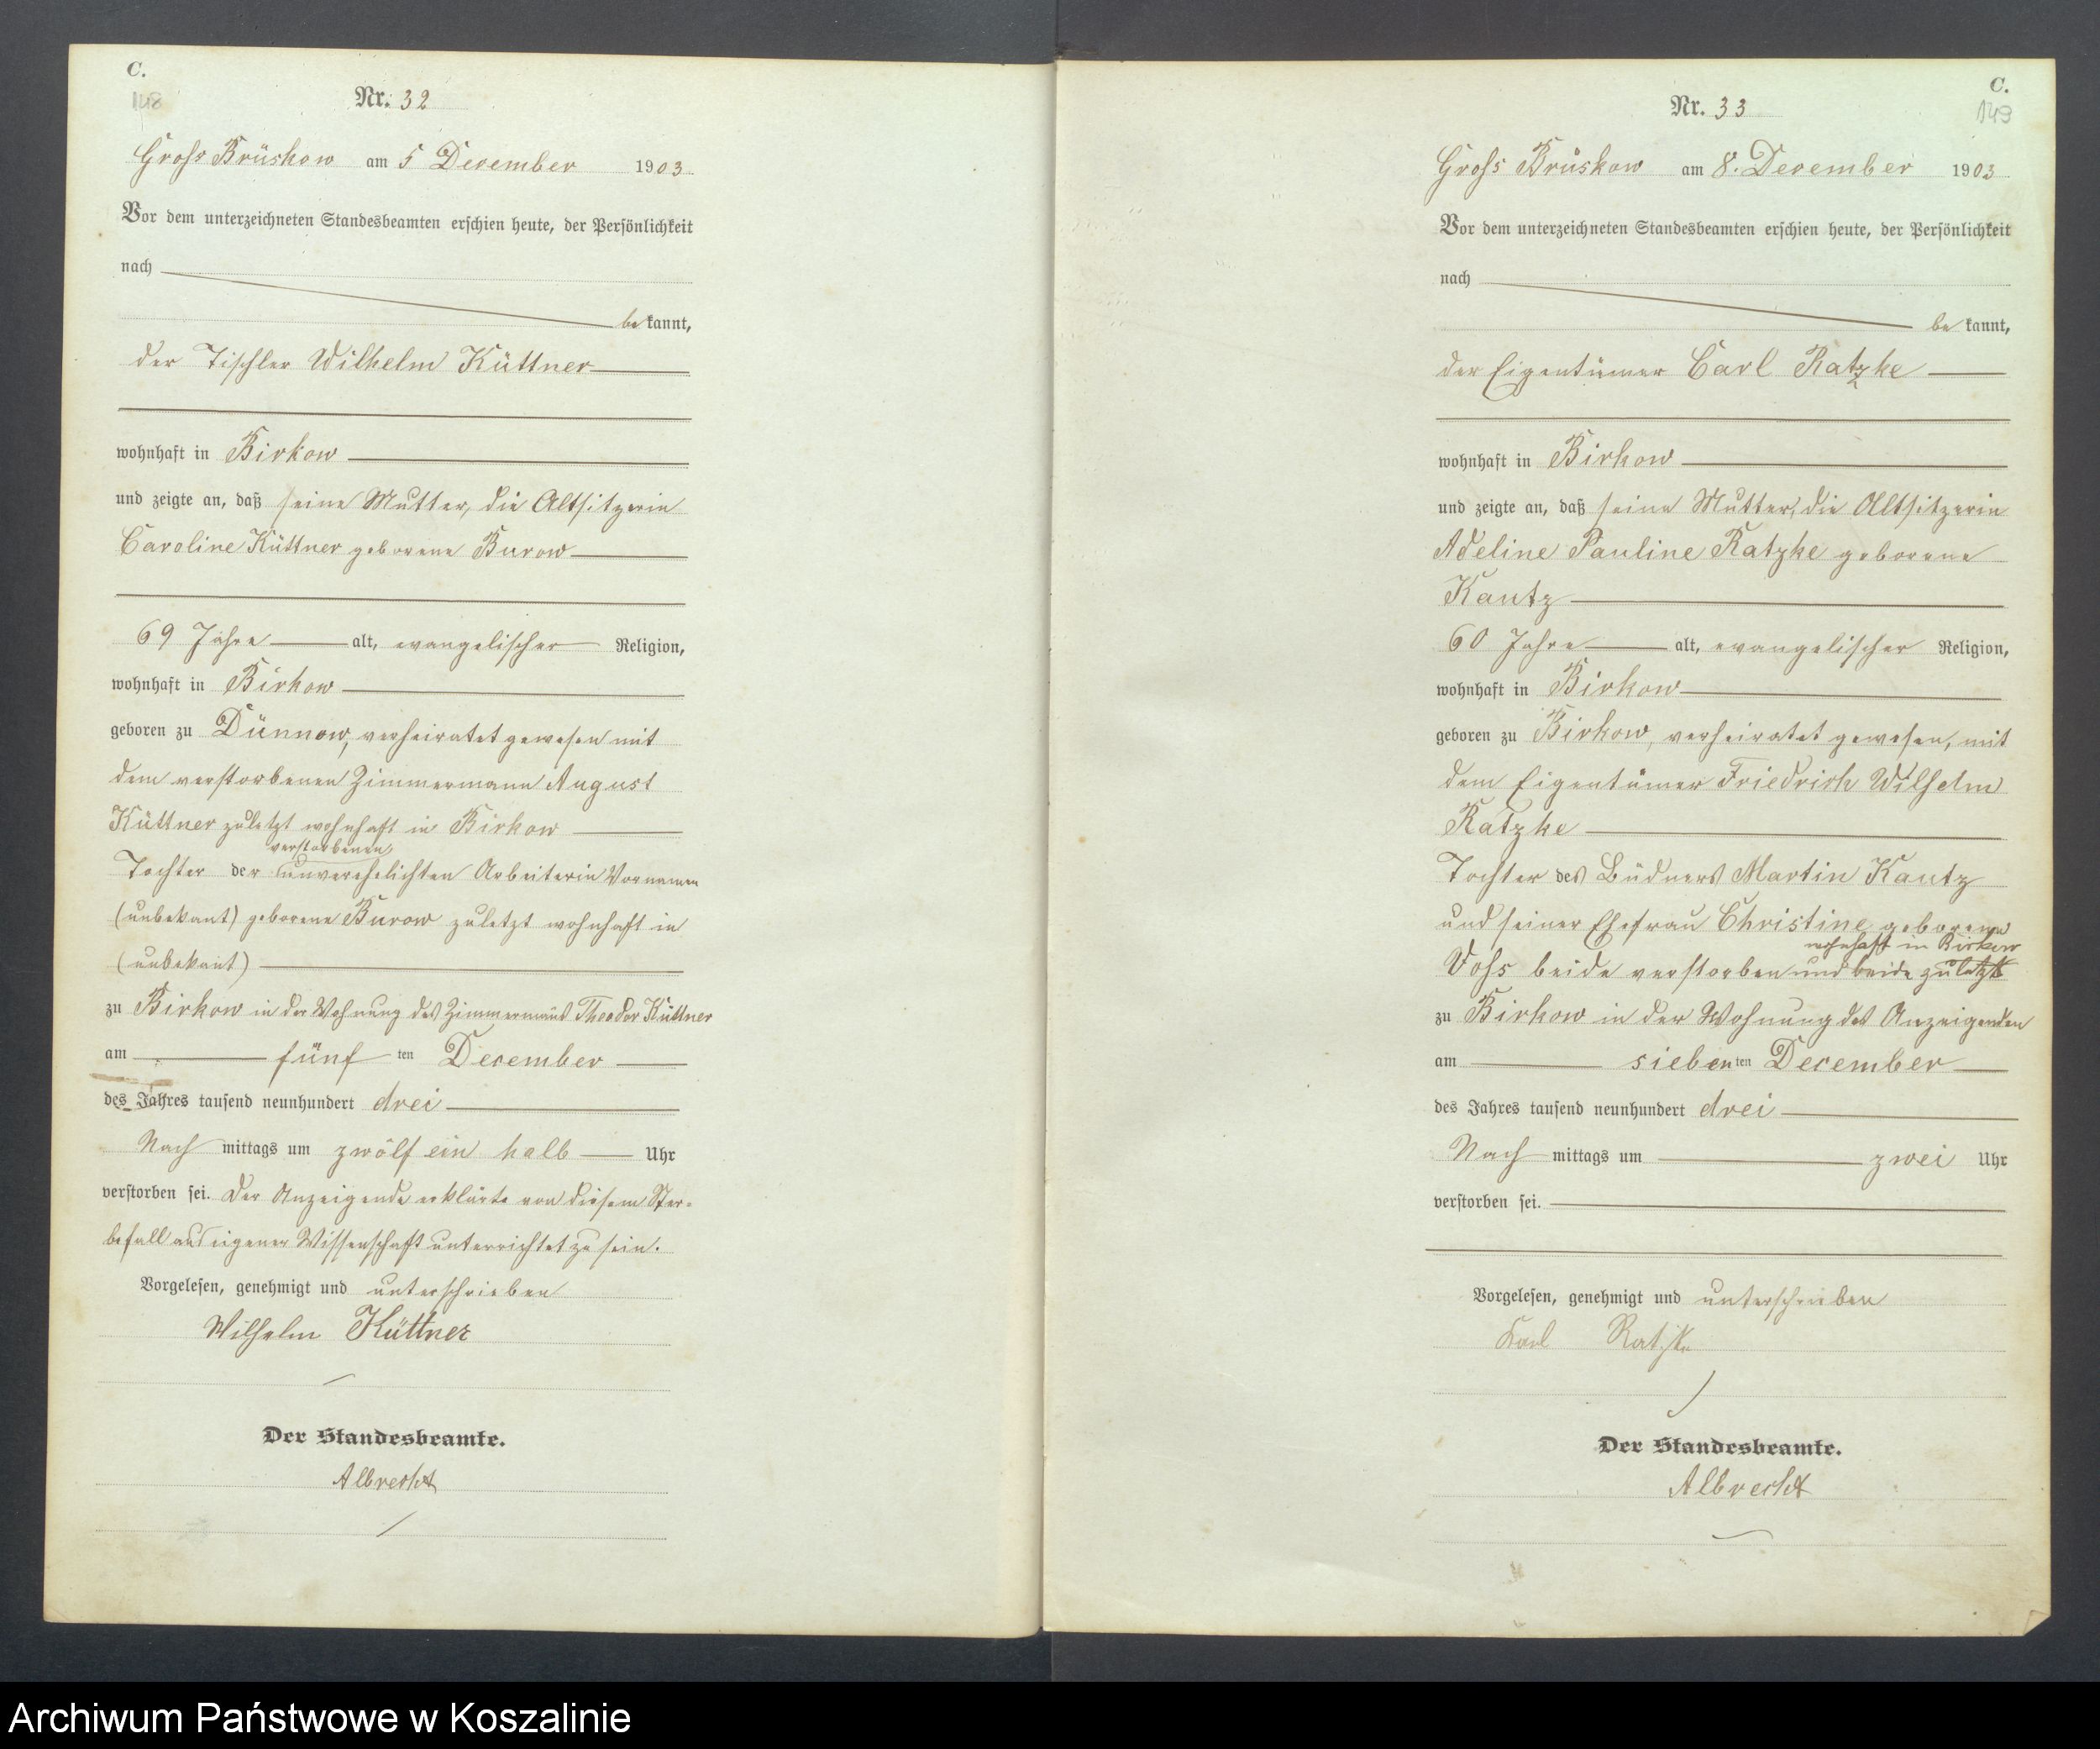 C.
148
Nr. 32
Gross Brüskow am 5 December 1903
Vor dem unterzeichneten Standesbeamten erschien heute, der Persönlichkeit
nach
be kannt,
der Tischler Wilhelm Küttner
wohnhaft in Birkow
und zeigte an, daß seine Mutter, die Altsitzerin
Caroline Küttner geborene Burow
69 Jahre alt, evangelischer Religion,
wohnhaft in Birkow
geboren zu Dünnow, verheiratet gewesen mit
dem verstorbenen Zimmermann August
Küttner zuletzt wohnhaft in Birkow
verstorbenen
Tochter der unverehelichten Arbeiterin Vornamen
(unbekant) geborene Burow zuletzt wohnhaft in
(unbekant)
zu Birkow in der Wohnung des Zimmermans Theodor Küttner
am fünf ten December
des Jahres tausend neunhundert drei
Nach mittags um zwölf ein halb Uhr
verstorben sei. Der Anzeigende erklärte von diesem Ster-
befall aus eigener Wissenschaft unterrichtet zu sein.
Vorgelesen, genehmigt und unterschrieben
Wilhelm Küttner
Der Standesbeamte.
Albrecht
C.
149
Nr. 33
Gross Brüskow am 8. December 1903
Vor dem unterzeichneten Standesbeamten erschien heute, der Persönlichkeit
nach
be kannt,
der Eigentümer Carl Ratzke
wohnhaft in Birkow
und zeigte an, daß seine Mutter, die Altsitzerin
Adeline Pauline Ratzke geborene
Kautz
60 Jahre alt, evangelischer Religion,
wohnhaft in Birkow
geboren zu Birkow, verheiratet gewesen, mit
dem Eigentümer Friedrich Wilhelm
Ratzke
Tochter des Büdners Martin Kautz
und seiner Ehefrau Christine geborene
wohnhaft in Birkow
Voss beide verstorben und beide zuletzt
zu Birkow in der Wohnung des Anzeigenden
am sieben ten December
des Jahres tausend neunhundert drei
Nach mittags um zwei Uhr
verstorben sei.
Vorgelesen, genehmigt und unterschrieben
Karl Ratzke
Der Standesbeamte.
Albrecht
Archiwum Państwowe w Koszalinie